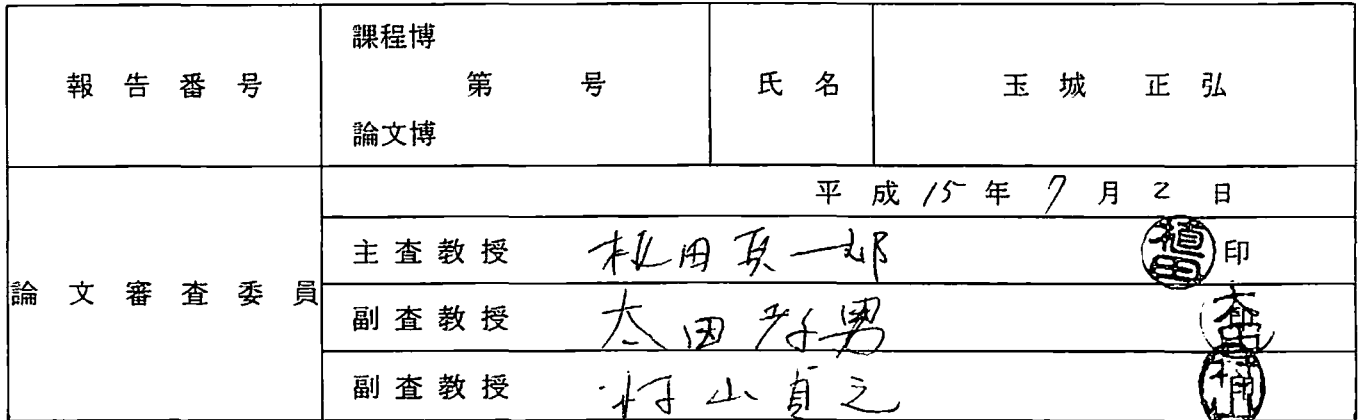 報告番号 課程博 第 号 論文博 氏名 玉城 正弘
論文審査委員
平成 15 年 7 月 2 日
主査教授 植田真一郎 植田 印
副査教授 太田孝男
副査教授 村山貞之